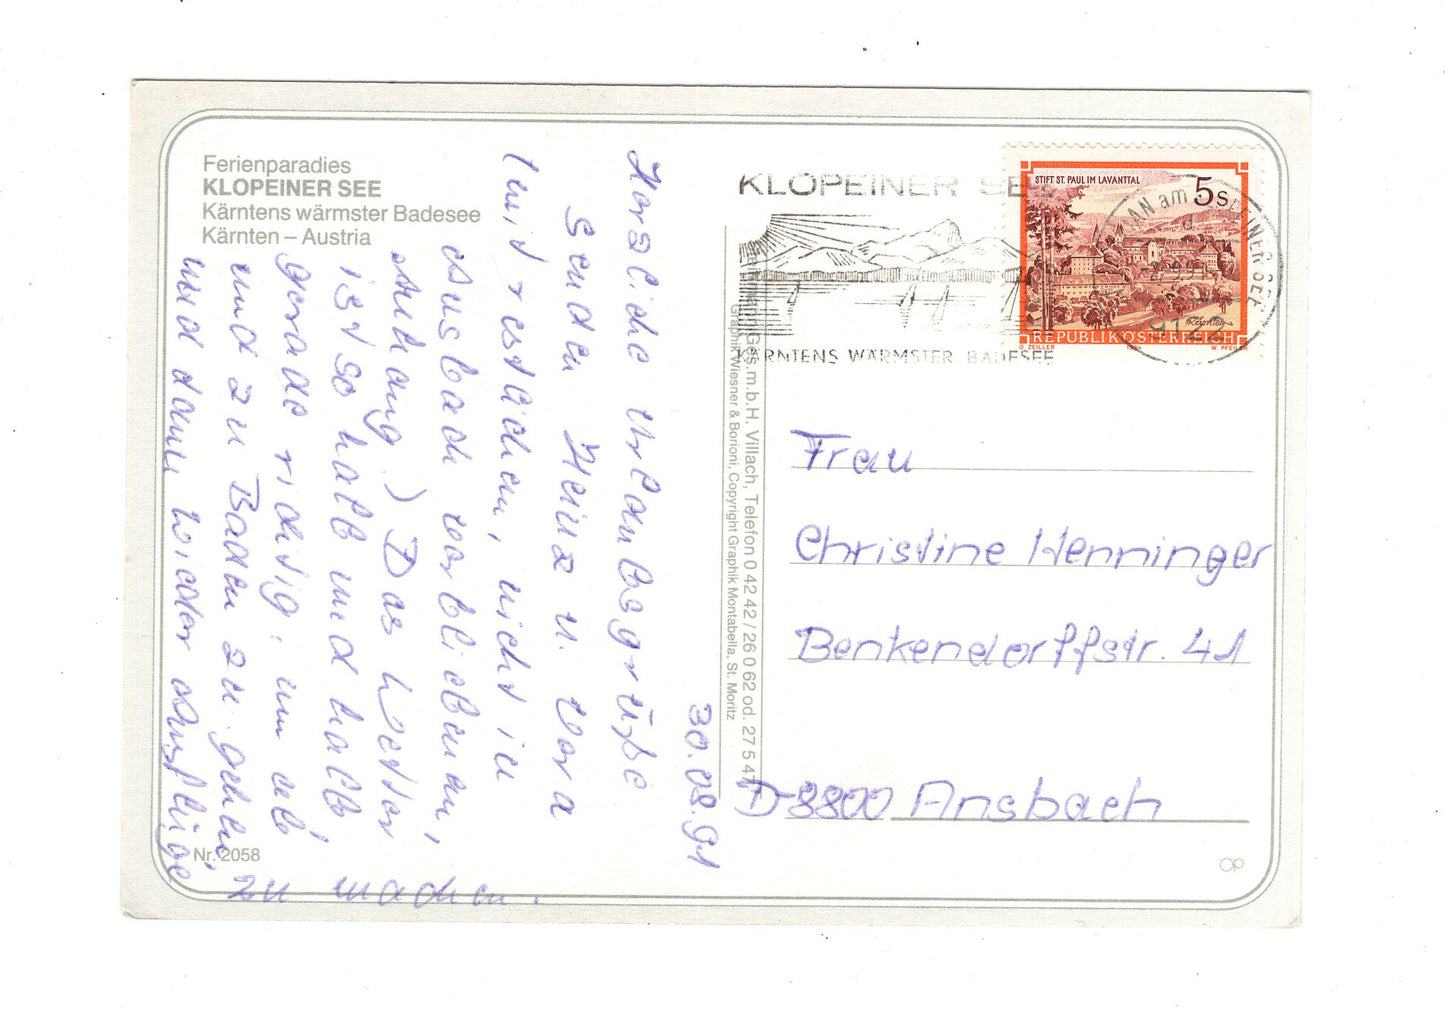 Ferienparadies
KLOPEINER SEE
Kärntens wärmster Badesee
Kärnten – Austria
30.08.91
Herzliche Urlaubsgrüße
senden Heinz u. Vera
(mit Testächen, nicht in
Ausbach verblieben,
Anhang.) Das Wetter
ist so halb und halb,
gerade richtig, um ab
und zu Baden zu gehen,
und dann wieder Ausflüge
zu machen.
Nr. 2058
Ges.m.b.H. Villach, Telefon 0 42 42 / 26 0 62 od. 27 5 47
Graphik Wiesner & Borioni, Copyright Graphik Montabella, St. Moritz
KLOPEINER SEE
KÄRNTENS WÄRMSTER BADESEE
STIFT ST. PAUL IM LAVANTTAL
5 S
REPUBLIK ÖSTERREICH
O. ZEILLER
W. PFEILER
AN am
9122
Frau
Christine Henninger
Benkendorffstr. 41
D-8800 Ansbach